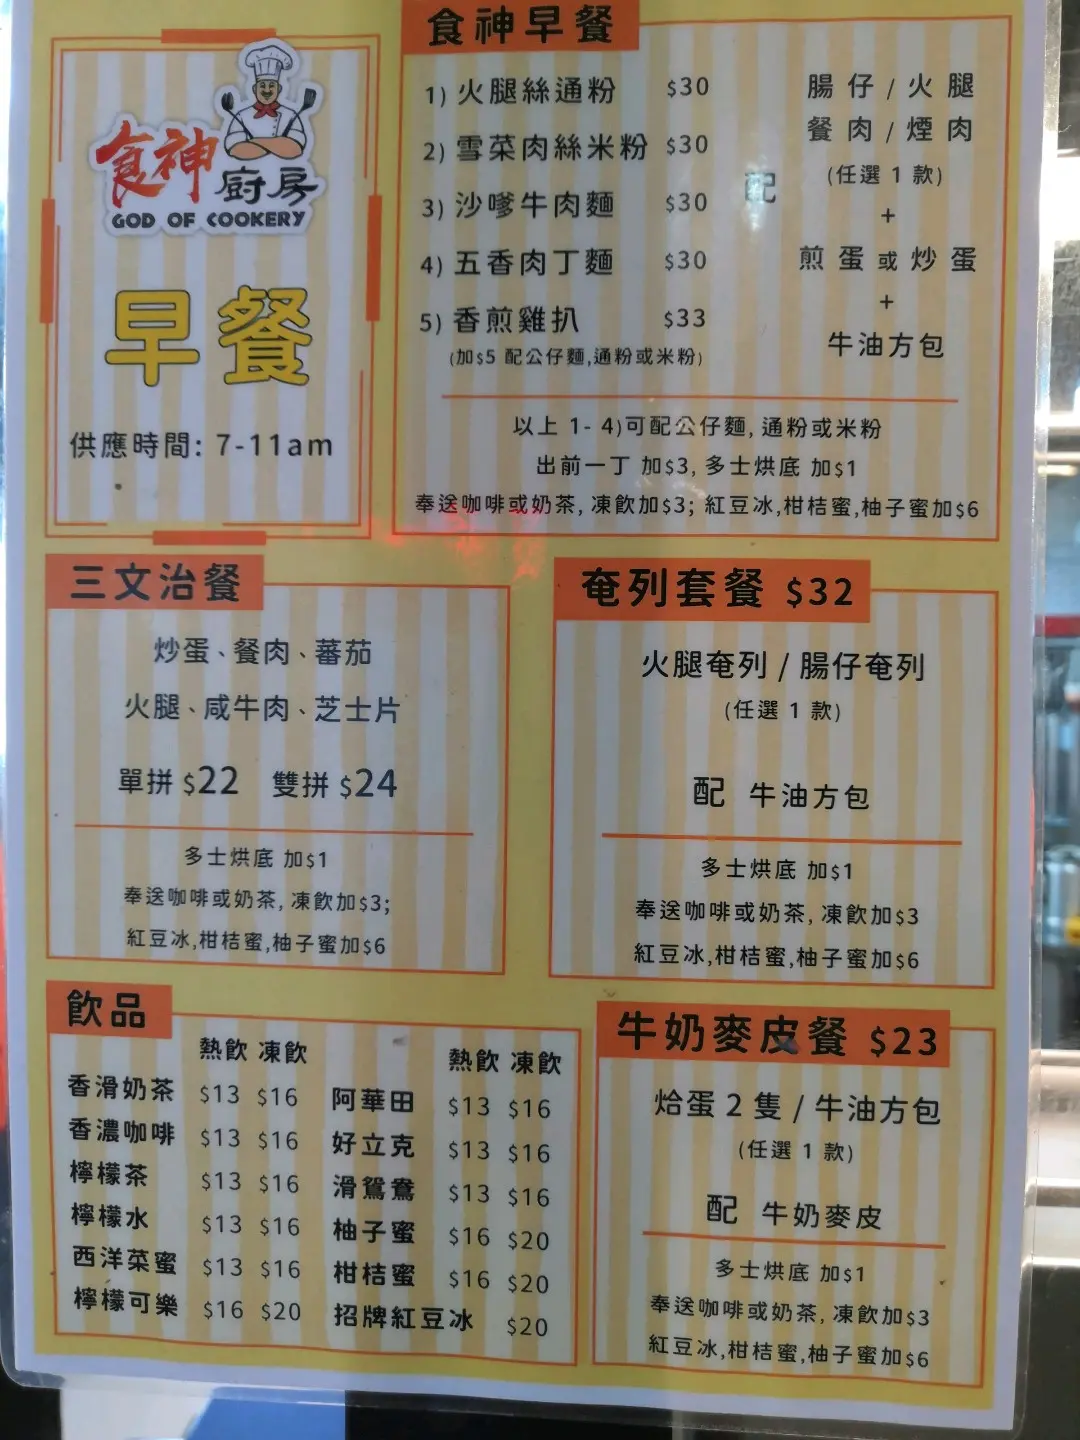 食神廚房
GOD OF COOKERY
早餐
供應時間: 7-11am
食神早餐
1) 火腿絲通粉 $30
2) 雪菜肉絲米粉 $30
3) 沙嗲牛肉麵 $30
4) 五香肉丁麵 $30
5) 香煎雞扒 $33
(加$5 配公仔麵,通粉或米粉)
配
腸仔/火腿
餐肉/煙肉
(任選 1 款)
+
煎蛋或炒蛋
+
牛油方包
以上 1- 4)可配公仔麵, 通粉或米粉
出前一丁 加$3, 多士烘底 加$1
奉送咖啡或奶茶, 凍飲加$3; 紅豆冰,柑桔蜜,柚子蜜加$6
三文治餐
炒蛋、餐肉、蕃茄
火腿、咸牛肉、芝士片
單拼 $22 雙拼 $24
多士烘底 加$1
奉送咖啡或奶茶, 凍飲加$3;
紅豆冰,柑桔蜜,柚子蜜加$6
奄列套餐 $32
火腿奄列 / 腸仔奄列
(任選 1 款)
配 牛油方包
多士烘底 加$1
奉送咖啡或奶茶, 凍飲加$3
紅豆冰,柑桔蜜,柚子蜜加$6
飲品
熱飲 凍飲
香滑奶茶 $13 $16
香濃咖啡 $13 $16
檸檬茶 $13 $16
檸檬水 $13 $16
西洋菜蜜 $13 $16
檸檬可樂 $16 $20
熱飲 凍飲
阿華田 $13 $16
好立克 $13 $16
滑鴛鴦 $13 $16
柚子蜜 $16 $20
柑桔蜜 $16 $20
招牌紅豆冰 $20
牛奶麥皮餐 $23
烚蛋 2 隻 / 牛油方包
(任選 1 款)
配 牛奶麥皮
多士烘底 加$1
奉送咖啡或奶茶, 凍飲加$3
紅豆冰,柑桔蜜,柚子蜜加$6